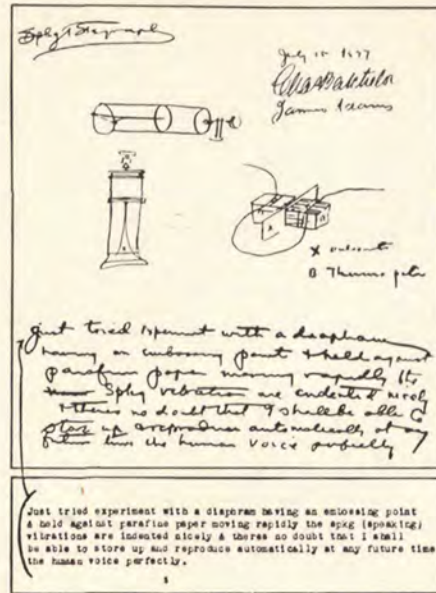 Spkg Telegraph
July 18 1877
Chas Batchelor
James Adams
X
O Thermo
Just tried experiment with a diaphram
having an embossing point & held against
parafine paper moving rapidly the
Spkg vibrations are indented nicely
& theres no doubt that I shall be able to
store up & reproduce automatically at any
future time the human voice perfectly
Just tried experiment with a diaphram having an embossing point
& held against parafine paper moving rapidly the spkg (speaking)
vibrations are indented nicely & theres no doubt that I shall
be able to store up and reproduce automatically at any future time
the human voice perfectly.